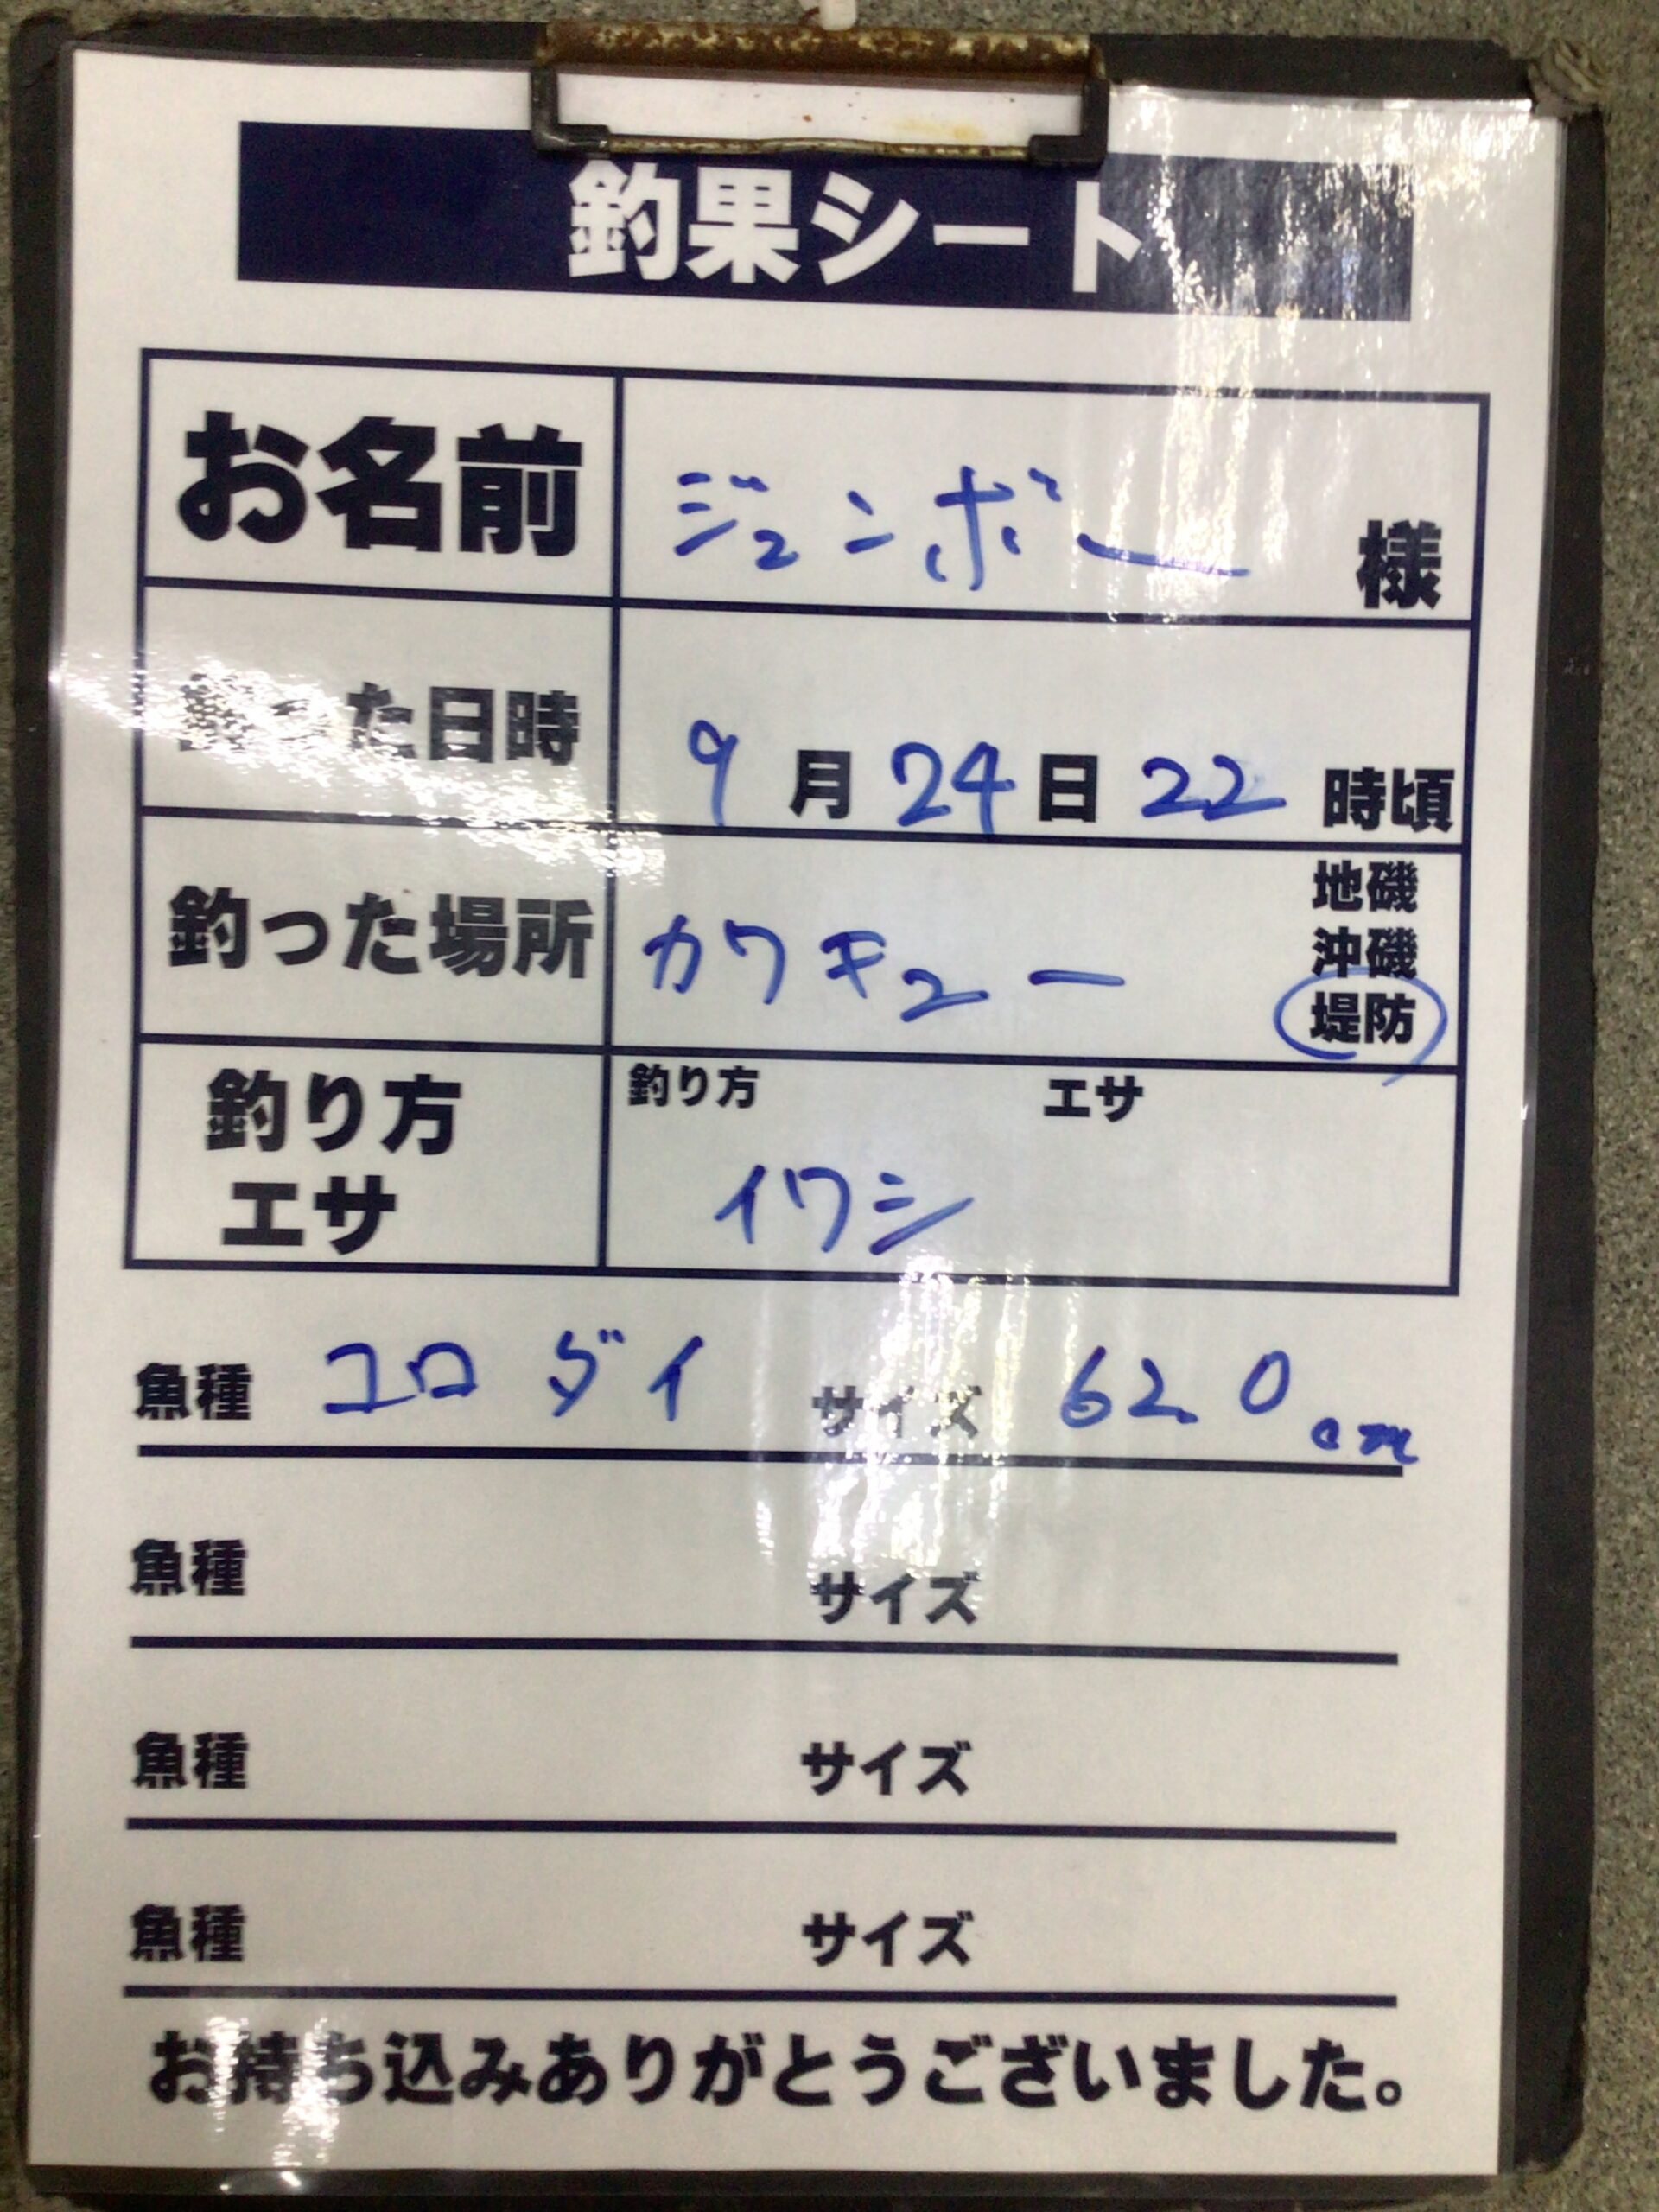 釣果シート
お名前 ジュンボー 様
釣った日時 9月24日22時頃
釣った場所 カワキュー
地磯
沖磯
堤防
釣り方
エサ
釣り方 エサ
イワシ
魚種 コロダイ サイズ 62.0cm
魚種 サイズ
魚種 サイズ
魚種 サイズ
お持ち込みありがとうございました。